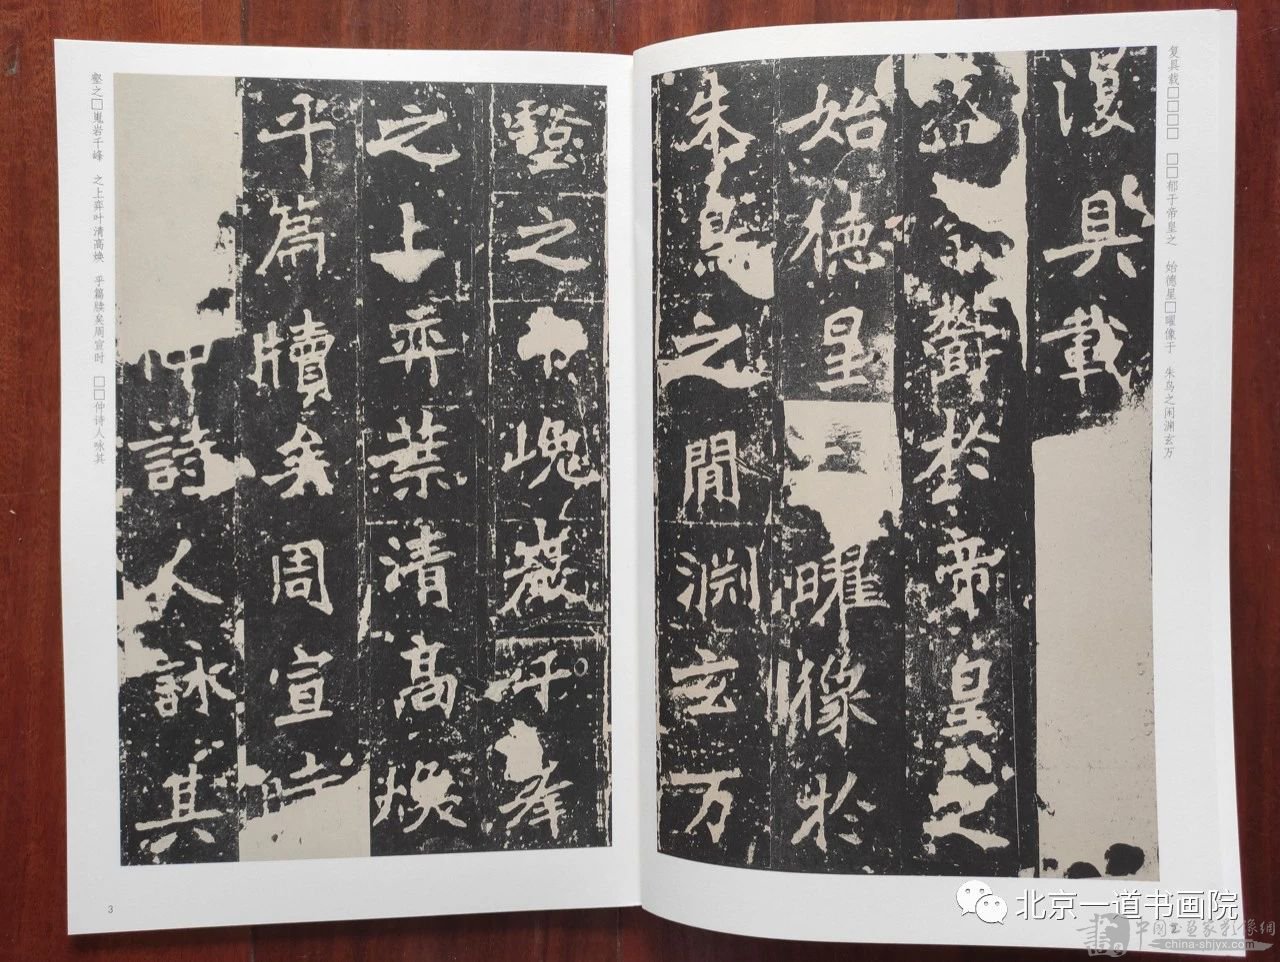 复具载□□□□ □□郁于帝皇之 始德星□曜像于 朱鸟之闲渊玄万
復具載
鬱於帝皇之
始德星曜像於
朱鳥之閒淵玄万
壑之巍巖千峯
之上弈葉清高煥
乎篇牘矣周宣時
仲詩人詠其
壑之□嵬岩千峰 之上弈叶清高焕 乎篇牍矣周宣时 □□仲诗人咏其
3
北京一道书画院
中国书画家影像網
china-shjyx.com